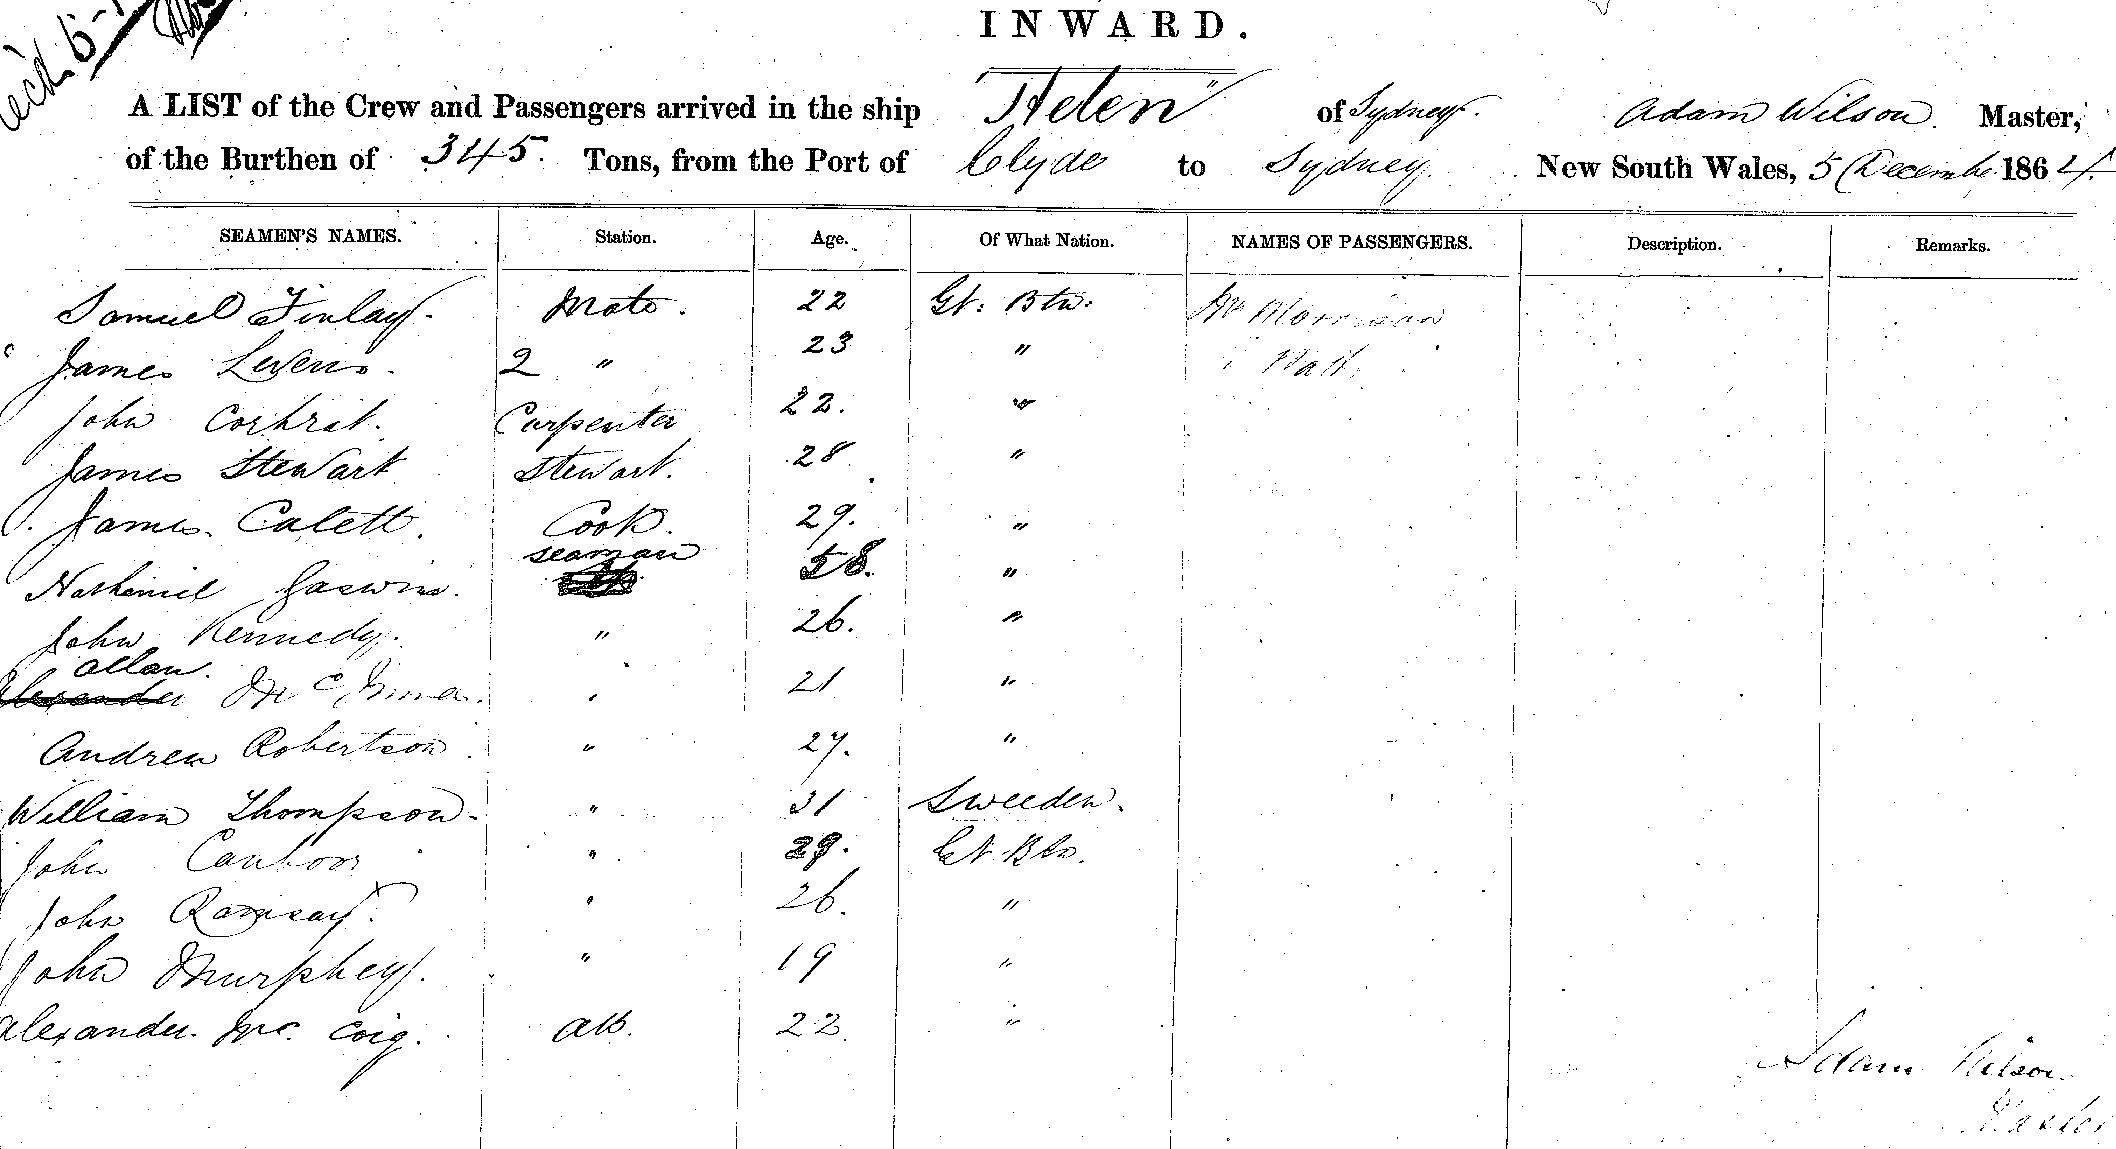 INWARD.
A LIST of the Crew and Passengers arrived in the ship "Helen" of Sydney. Adam Wilson. Master,
of the Burthen of 345. Tons, from the Port of Clyde to Sydney. New South Wales, 5 December 1864.
SEAMEN'S NAMES. Station. Age. Of What Nation. NAMES OF PASSENGERS. Description. Remarks.
Samuel Finlay. Mate. 22 Gt. Btn. Mr Morrison
James Levens. 2 " 23 " " Watt.
John 22. Carpenter "
James Stewart Stewart. 28 "
James. Catett. Cook. 29. "
seaman
Nathaniel 58. "
John Kennedy. " 26. "
allan.
Alexander Mc " 21 "
Andrew Robertson " 27. "
William Thompson. " 31 Sweeden.
John " 29. Gt Btn.
John Ramsay. " 26. "
John Murphey. " 19 "
Alexander. Mc. Coig. AB. 22. "
Adam Wilson
Master